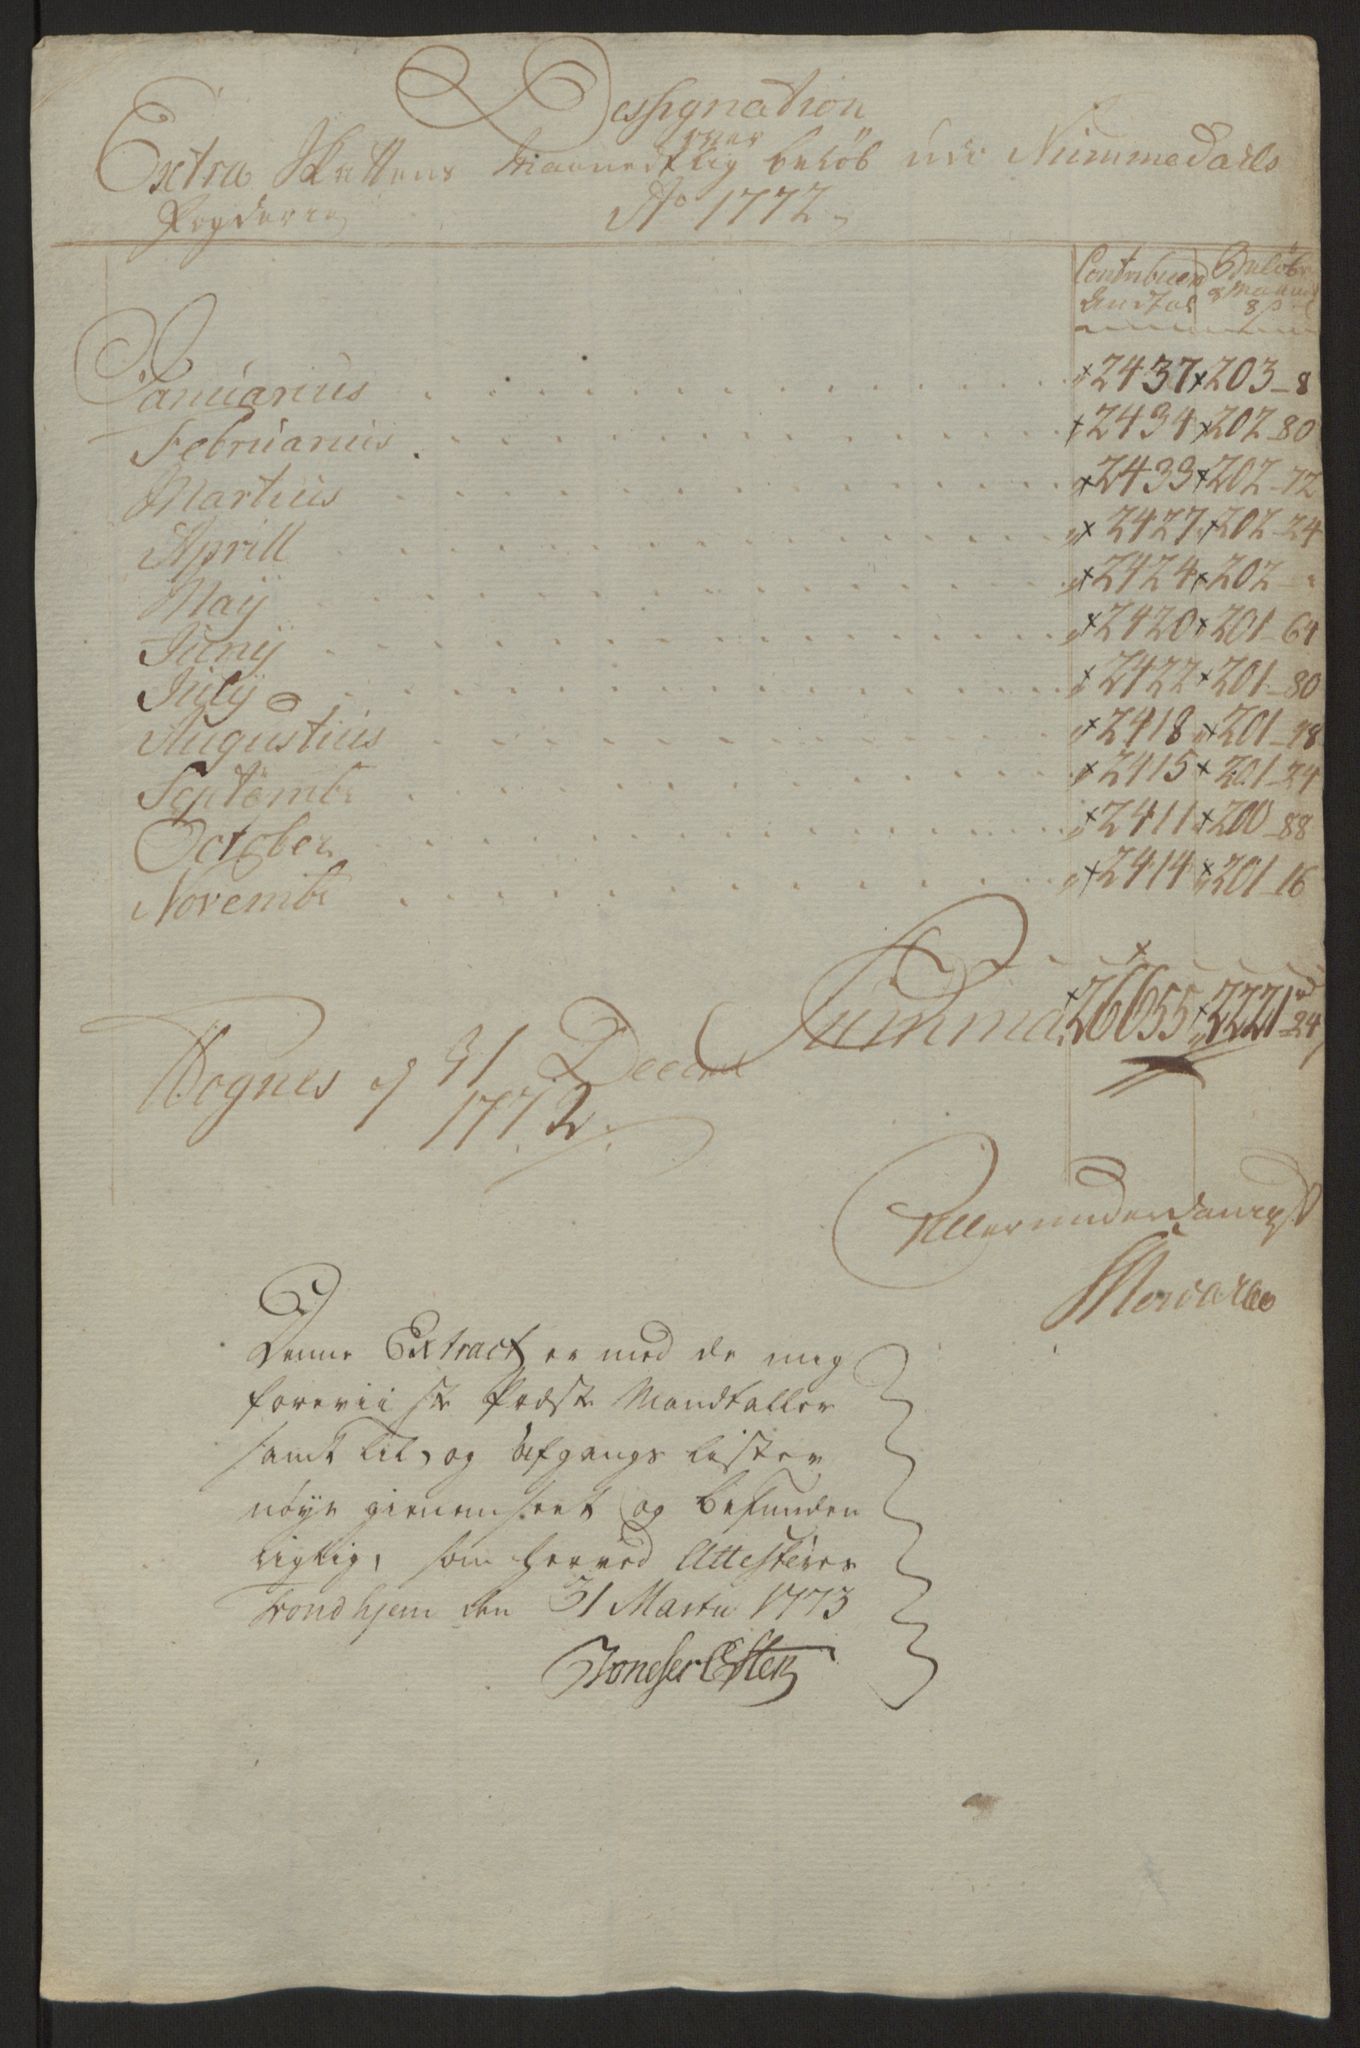 Dessignation
over
Extra Skattens Maanedtlig beløb udi Nummedahls
Fogderie Ao 1772
Contribuent Beløb
Andtal
Januarius 2437 203 - 8
Februarius 2434 202 - 80
Martius 2433 202 - 72
Aprill 2427 202 - 24
Maÿ 2424 202 -
Junÿ 2420 201 - 64
Julÿ 2422 201 - 80
Augustius 2418 201 - 48
Septembr 2415 201 - 24
October 2411 200 - 88
Novembr 2414 201 - 16
Summa 26655 2221 rd 24
Wognes d 31 Decbr
1772.
Allerunderdanigst
Denne Extract er med de mig
foreviiste Præste Mandtaller
samt til og afgangs lister
nøye gienemseet og befunden
rigtig, som herved Attesteres
Trondhjem den 31 Martii 1773